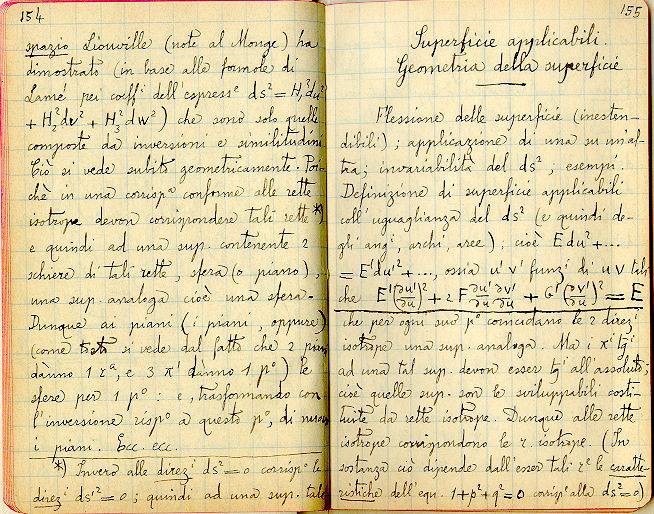 154
spazio Liouville (note al Monge) ha
dimostrato (in base alle formole di
Lamé pei coeffi dell'espress.e ds² = H₁²du²
+ H₂²dv² + H₃²dw²) che sono solo quelle
composte da inversioni e similitudini.
Ciò si vede subito geometricamente. Poi-
chè in una corrisp.a conforme alle rette
isotrope devon corrispondere tali rette *)
e quindi ad una sup. contenente 2
schiere di tali rette, sfera (o piano),
una sup. analoga cioè una sfera.
Dunque ai piani (i piani, oppure)
(come si vede dal fatto che 2 piani
dànno 1 rᵃ, e 3 πⁱ dànno 1 pº) le
sfere per 1 pº: e, trasformando con
l'inversione rispº a questo pº, di nuovo
i piani. Ecc. ecc.
*) Invero alle direzⁱ ds²=0 corrispº le
direzⁱ ds'²=0; quindi ad una sup. tale
155
Superficie applicabili.
Geometria della superficie
Flessione delle superficie (inesten-
dibili); applicazione di una su un'al-
tra; invariabilità del ds²; esempi.
Definizione di superficie applicabili
coll'uguaglianza del ds² (e quindi de-
gli angⁱ, archi, aree); cioè Edu² + ...
= E'du'² + ..., ossia u' v' funzⁱ di u v tali
che E'(∂u'/∂u)² + 2F' ∂u'/∂u ∂v'/∂u + G'(∂v'/∂u)² = E
che per ogni suo pº coincidano le 2 direzⁱ
isotrope una sup. analoga. Ma i πⁱ tgⁱ
ad una tal sup. devon esser tgⁱ all'assoluto;
cioè quelle sup. son le sviluppabili costi-
tuite da rette isotrope. Dunque alle rette
isotrope corrispondono le r. isotrope. (In
sostanza ciò dipende dall'esser tali rᵉ le caratte-
ristiche dell'equ. 1+p²+q²=0 corrispᵉ alla ds²=0)